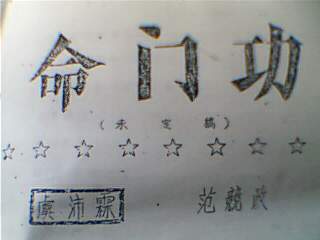 命门功
(未定稿)
☆ ☆ ☆ ☆ ☆ ☆ ☆ ☆
虞沛霖 范兢政